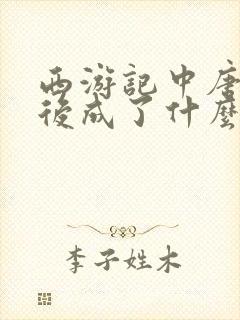 西游記中唐
後成了什麼
李子姓木